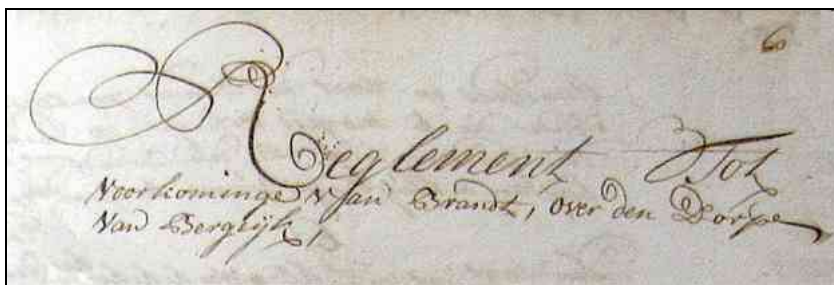 6
Reglement Tot
Voorkominge Van Brandt, over den Dorpe
Van Bergeijk,